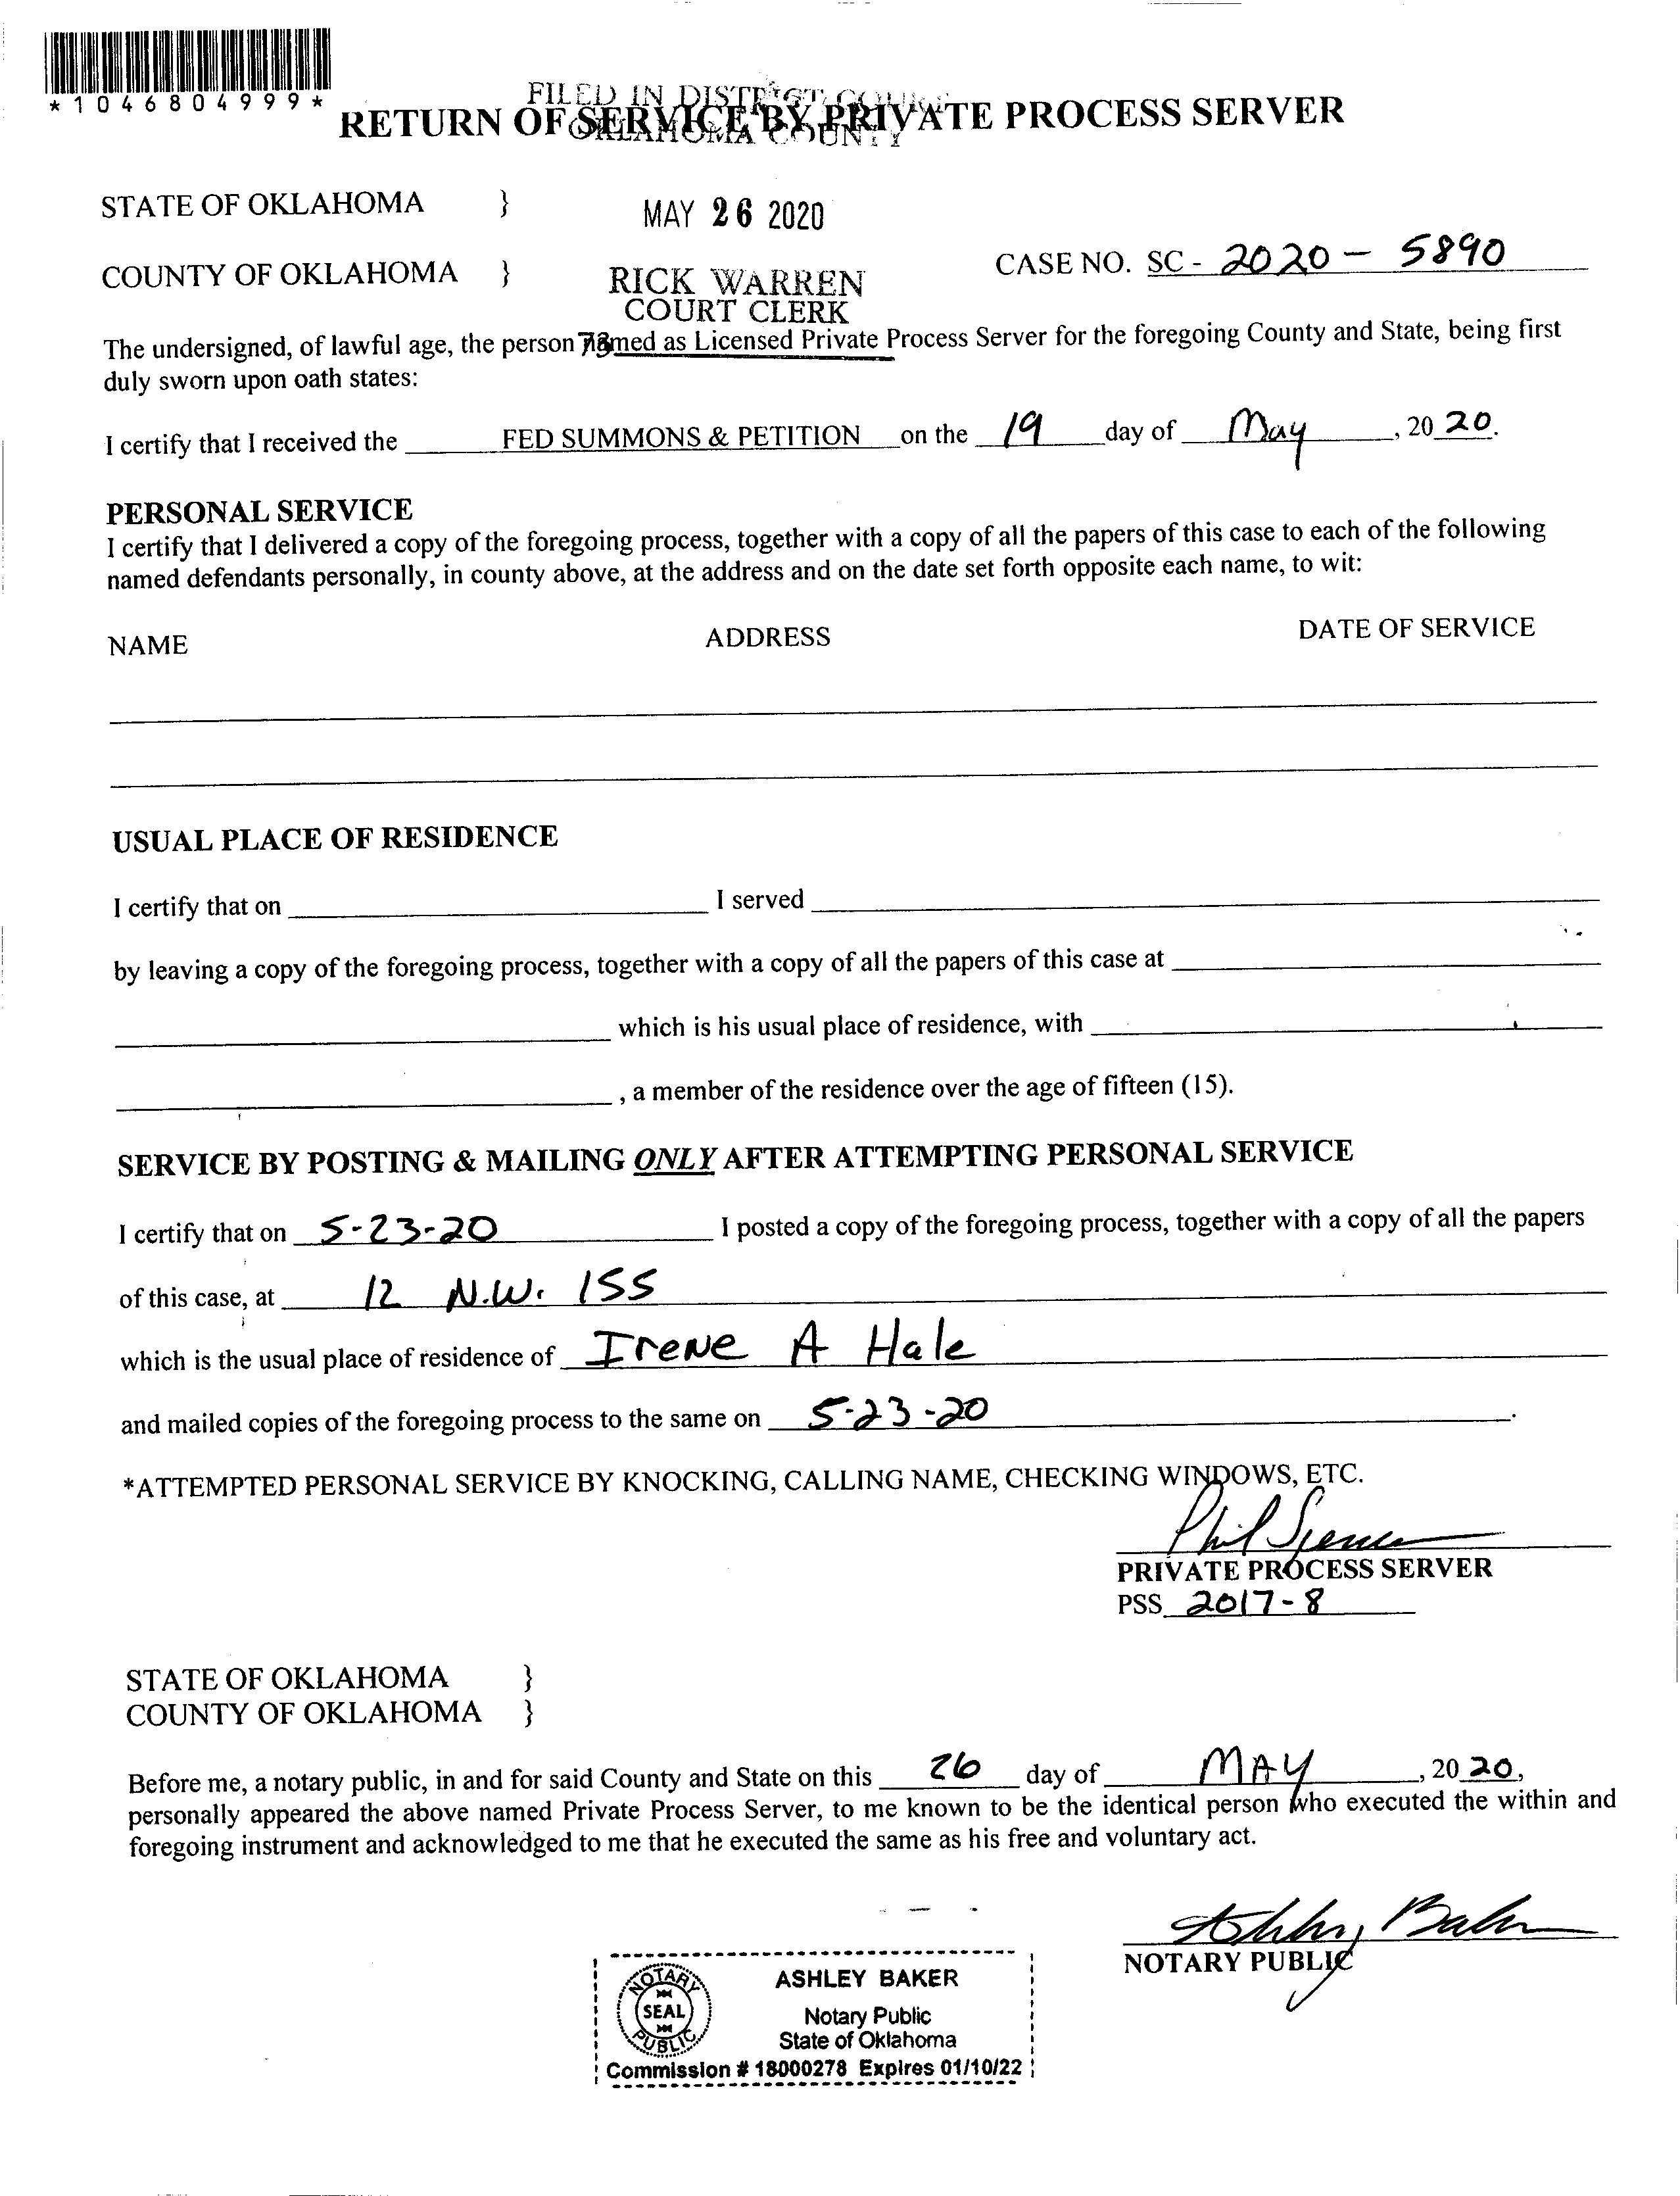 *1046804999*
FILED IN DISTRICT COURT
OKLAHOMA COUNTY
RETURN OF SERVICE BY PRIVATE PROCESS SERVER
STATE OF OKLAHOMA }
MAY 26 2020
COUNTY OF OKLAHOMA }
RICK WARREN
COURT CLERK
CASE NO. SC - 2020 - 5890
73
The undersigned, of lawful age, the person named as Licensed Private Process Server for the foregoing County and State, being first
duly sworn upon oath states:
I certify that I received the FED SUMMONS & PETITION on the 19 day of May, 2020.
PERSONAL SERVICE
I certify that I delivered a copy of the foregoing process, together with a copy of all the papers of this case to each of the following
named defendants personally, in county above, at the address and on the date set forth opposite each name, to wit:
NAME ADDRESS DATE OF SERVICE
USUAL PLACE OF RESIDENCE
I certify that on I served
by leaving a copy of the foregoing process, together with a copy of all the papers of this case at
which is his usual place of residence, with
, a member of the residence over the age of fifteen (15).
SERVICE BY POSTING & MAILING ONLY AFTER ATTEMPTING PERSONAL SERVICE
I certify that on 5-23-20 I posted a copy of the foregoing process, together with a copy of all the papers
of this case, at 12 N.W. 155
which is the usual place of residence of Irene A Hale
and mailed copies of the foregoing process to the same on 5-23-20.
*ATTEMPTED PERSONAL SERVICE BY KNOCKING, CALLING NAME, CHECKING WINDOWS, ETC.
Phil Spencer
PRIVATE PROCESS SERVER
PSS 2017-8
STATE OF OKLAHOMA }
COUNTY OF OKLAHOMA }
Before me, a notary public, in and for said County and State on this 26 day of MAY, 2020,
personally appeared the above named Private Process Server, to me known to be the identical person who executed the within and
foregoing instrument and acknowledged to me that he executed the same as his free and voluntary act.
Ashley Baker
NOTARY PUBLIC
NOTARY
SEAL
PUBLIC
ASHLEY BAKER
Notary Public
State of Oklahoma
Commission # 18000278 Expires 01/10/22